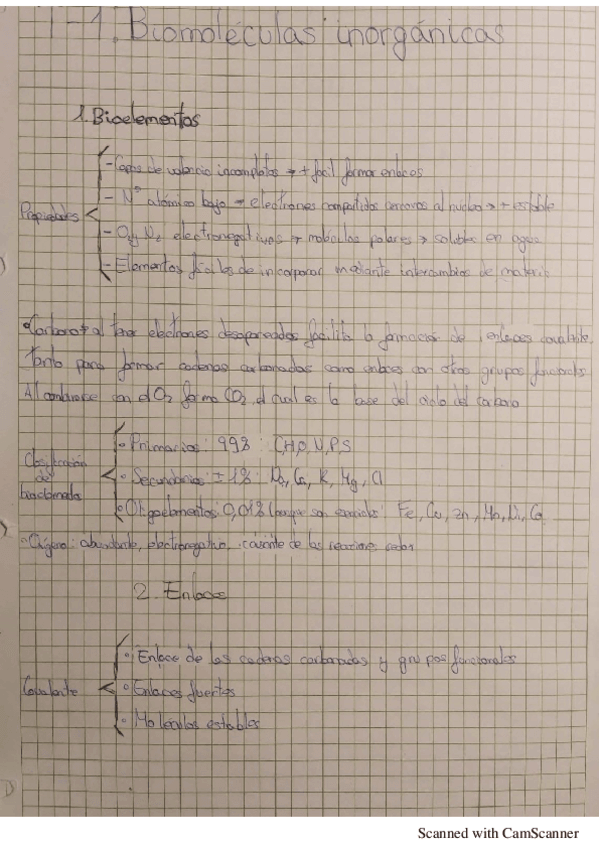 T-1. Biomoléculas inorgánicas
1. Bioelementos
Propiedades
- Capas de valencia incompletas → + fácil formar enlaces
- Nº atómico bajo → electrones compartidos cercanos al núcleo → + estable
- O2 y N2 electronegativos → moléculas polares → solubles en agua
- Elementos fáciles de incorporar mediante intercambios de materia
Carbono → al tener electrones desapareados facilita la formación de enlaces covalente,
tanto para formar cadenas carbonadas como enlaces con otros grupos funcionales
Al combinarse con el O2 forma CO2, el cual es la base del ciclo del carbono
Clasificación de bioelementos
Primarios: 99% C,H,O,N,P,S
Secundarios ±1%: Na, Ca, K, Mg, Cl
Oligoelementos: 0,01% (aunque son esenciales): Fe, Cu, Zn, Mn, Ni, Co
Oxígeno: abundante, electronegativo, de las reacciones redox
2. Enlace
Covalente
Enlace de las cadenas carbonadas y grupos funcionales
Enlaces fuertes
Moléculas estables
Scanned with CamScanner